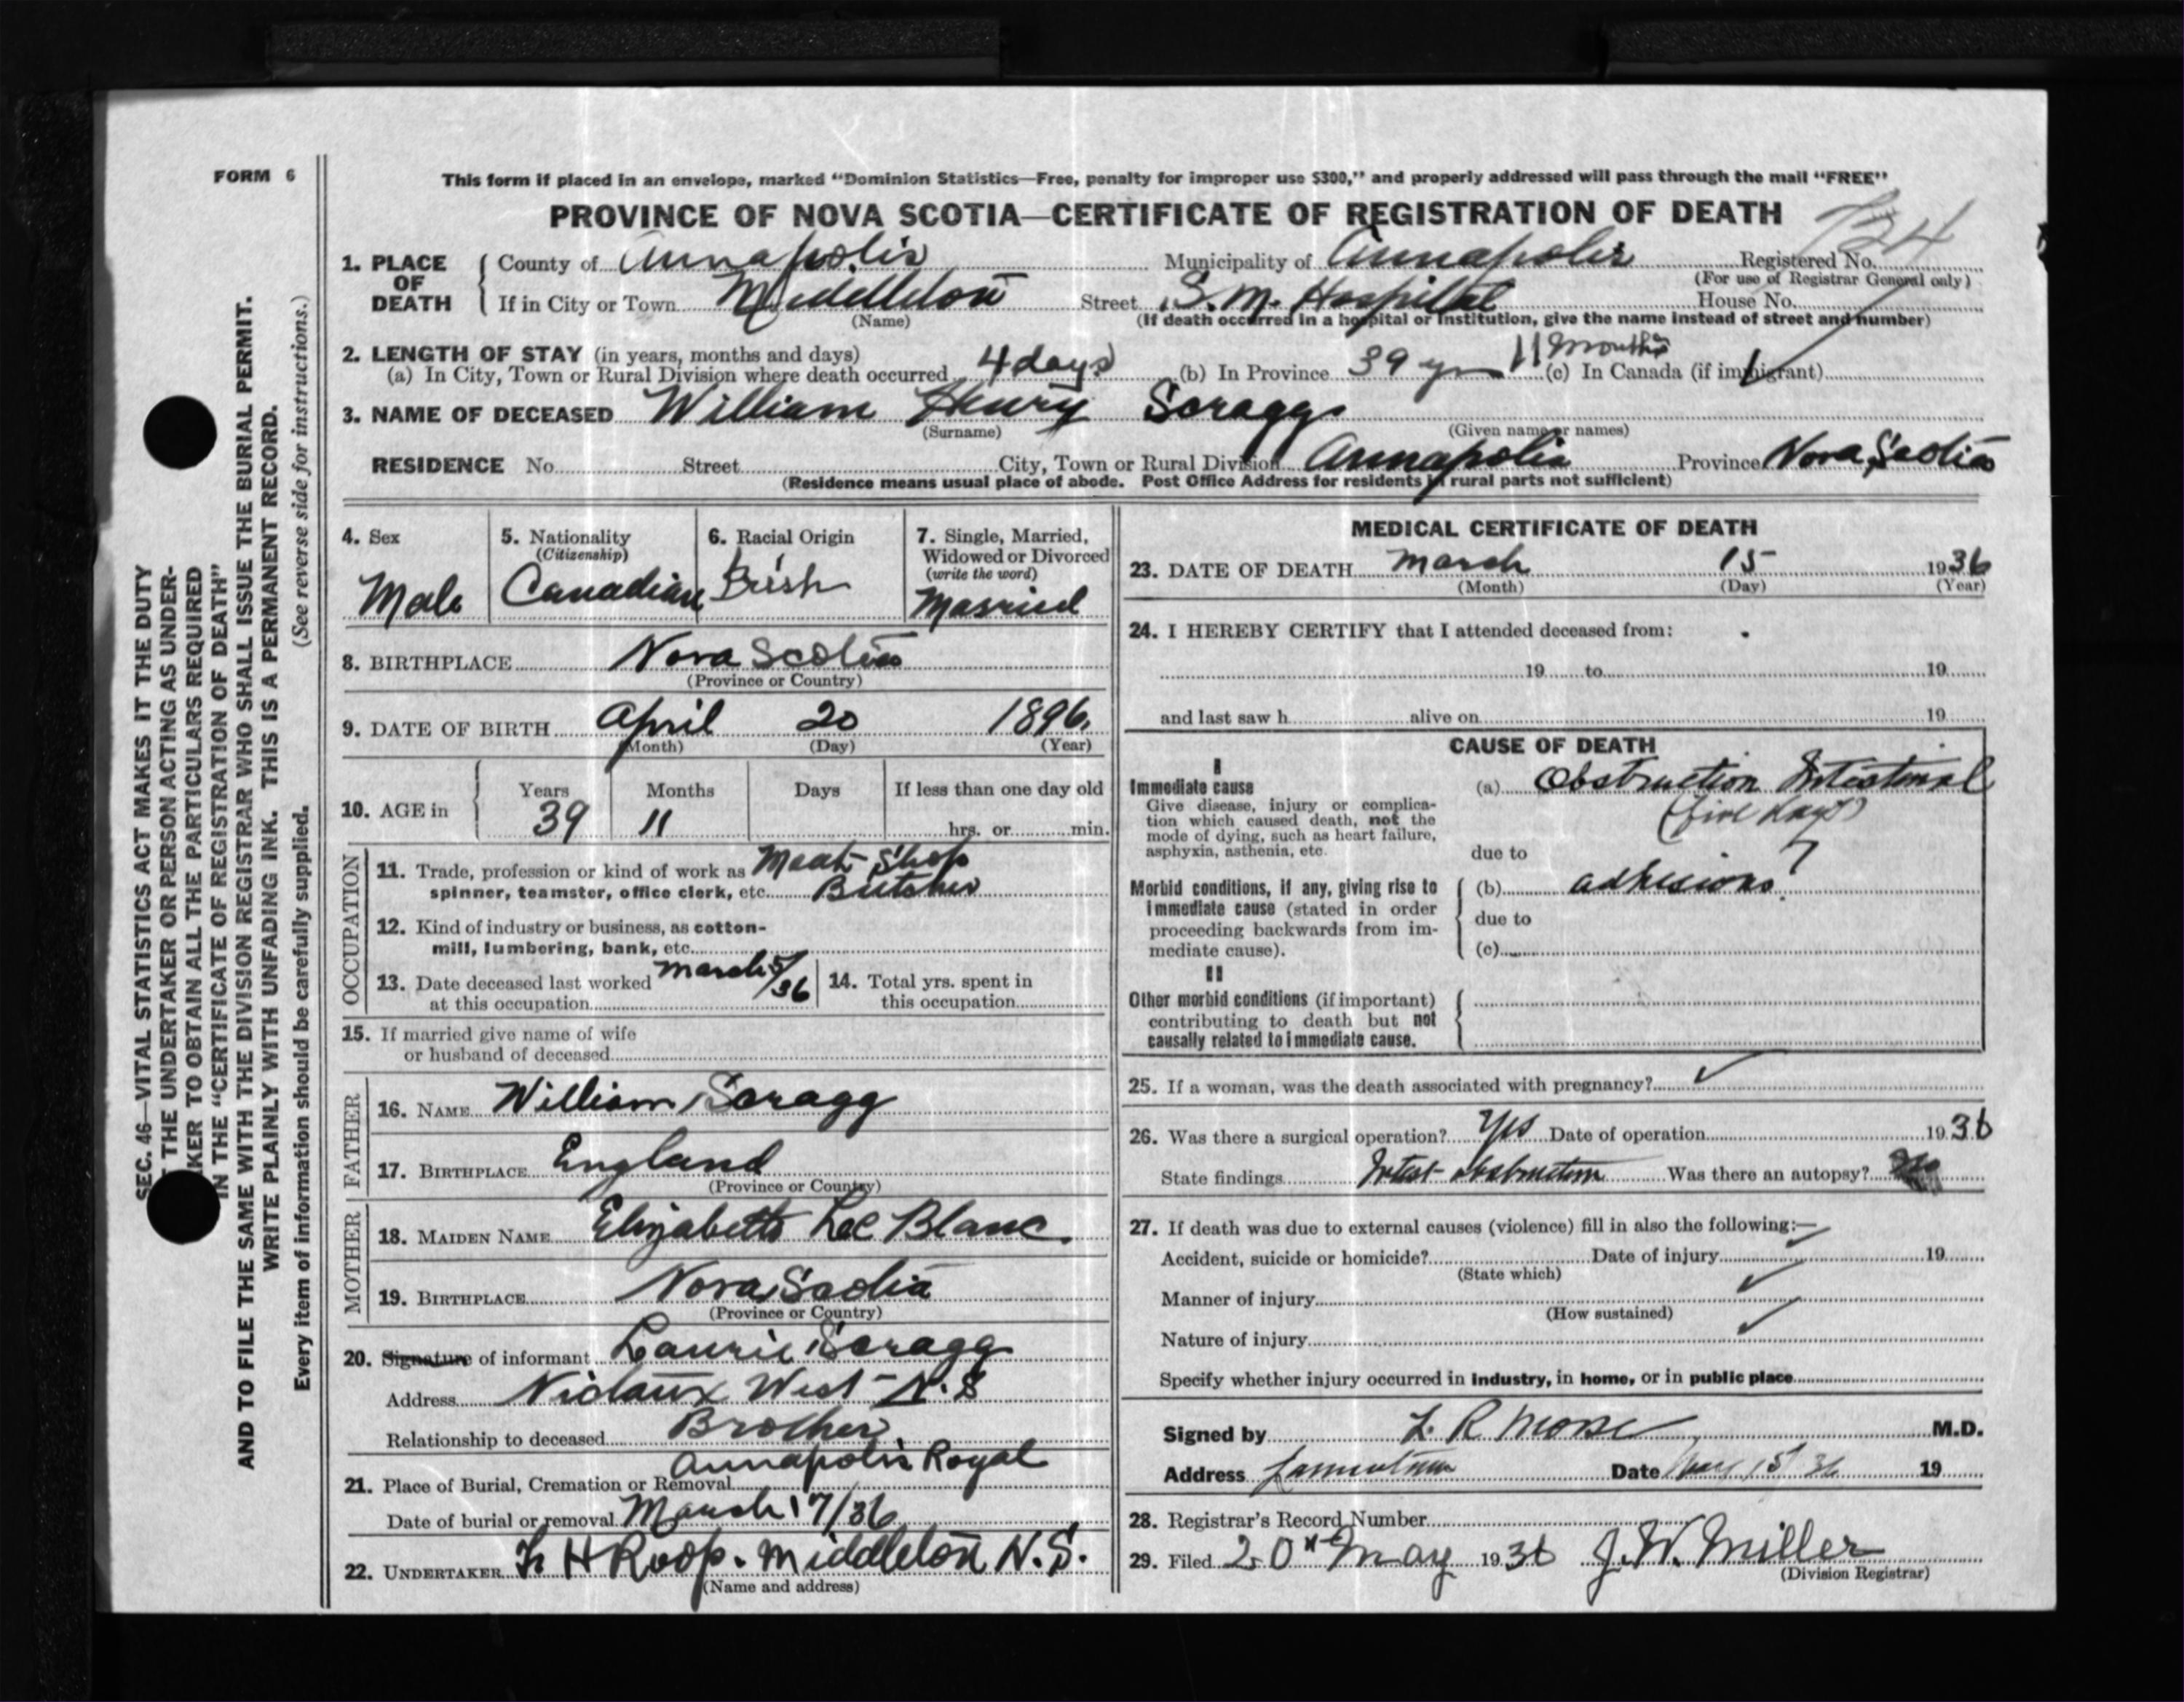 FORM 6
This form if placed in an envelope, marked "Dominion Statistics—Free, penalty for improper use $300," and properly addressed will pass through the mail "FREE"
PROVINCE OF NOVA SCOTIA—CERTIFICATE OF REGISTRATION OF DEATH
1. PLACE OF DEATH County of Annapolis Municipality of Annapolis Registered No. 724
(For use of Registrar General only)
If in City or Town Middleton Street S. M. Hospital House No.
(Name) (If death occurred in a hospital or institution, give the name instead of street and number)
2. LENGTH OF STAY (in years, months and days)
(a) In City, Town or Rural Division where death occurred 4 days (b) In Province 39 yr 11 months (c) In Canada (if immigrant)
3. NAME OF DECEASED William Henry Scragg
(Surname) (Given name or names)
RESIDENCE No. Street City, Town or Rural Division Annapolis Province Nova Scotia
(Residence means usual place of abode. Post Office Address for residents in rural parts not sufficient)
4. Sex Male
5. Nationality (Citizenship) Canadian
6. Racial Origin
7. Single, Married, Widowed or Divorced (write the word) Married
8. BIRTHPLACE Nova Scotia
(Province or Country)
9. DATE OF BIRTH April 20 1896.
(Month) (Day) (Year)
10. AGE in Years 39 Months 11 Days If less than one day old hrs. or min.
OCCUPATION
11. Trade, profession or kind of work as Meat Shop
spinner, teamster, office clerk, etc. Butcher
12. Kind of industry or business, as cotton-
mill, lumbering, bank, etc.
13. Date deceased last worked at this occupation March 5/36
14. Total yrs. spent in this occupation
15. If married give name of wife
or husband of deceased
FATHER
16. NAME William Scragg
17. BIRTHPLACE England
(Province or Country)
MOTHER
18. MAIDEN NAME Elizabeth Lee Blanc.
19. BIRTHPLACE Nova Scotia
(Province or Country)
20. Signature of informant Laurie Scragg
Address Nictaux West N.S
Relationship to deceased Brother
21. Place of Burial, Cremation or Removal Annapolis Royal
Date of burial or removal March 17/36
22. UNDERTAKER F H Roop. Middleton N.S.
(Name and address)
MEDICAL CERTIFICATE OF DEATH
23. DATE OF DEATH March 15 1936
(Month) (Day) (Year)
24. I HEREBY CERTIFY that I attended deceased from:
19 to 19
and last saw h alive on 19
CAUSE OF DEATH
I
Immediate cause
Give disease, injury or complica-
tion which caused death, not the
mode of dying, such as heart failure,
asphyxia, asthenia, etc.
(a) Obstruction Intestinal
(five days)
due to
Morbid conditions, if any, giving rise to
immediate cause (stated in order
proceeding backwards from im-
mediate cause).
(b) adhesions
due to
(c)
II
Other morbid conditions (if important)
contributing to death but not
causally related to immediate cause.
25. If a woman, was the death associated with pregnancy?
26. Was there a surgical operation? Yes Date of operation 1936
State findings Intest obstruction Was there an autopsy?
27. If death was due to external causes (violence) fill in also the following:—
Accident, suicide or homicide? Date of injury 19
(State which)
Manner of injury
(How sustained)
Nature of injury
Specify whether injury occurred in industry, in home, or in public place
Signed by L. R Morse M.D.
Address Date 15 36 19
28. Registrar's Record Number
29. Filed 20th May 1936 J. W. Miller
(Division Registrar)
SEC. 46—VITAL STATISTICS ACT MAKES IT THE DUTY
THE UNDERTAKER OR PERSON ACTING AS UNDER-
KER TO OBTAIN ALL THE PARTICULARS REQUIRED
IN THE "CERTIFICATE OF REGISTRATION OF DEATH"
AND TO FILE THE SAME WITH THE DIVISION REGISTRAR WHO SHALL ISSUE THE BURIAL PERMIT.
WRITE PLAINLY WITH UNFADING INK. THIS IS A PERMANENT RECORD.
Every item of information should be carefully supplied. (See reverse side for instructions.)